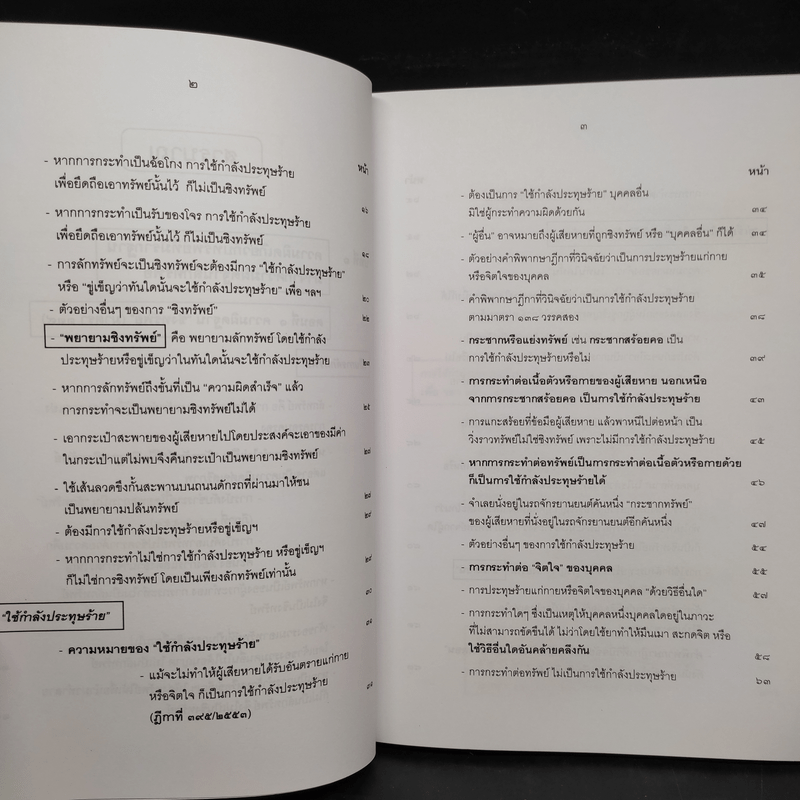 ๒
หน้า
- หากการกระทำเป็นฉ้อโกง การใช้กำลังประทุษร้าย
เพื่อยึดถือเอาทรัพย์นั้นไว้ ก็ไม่เป็นชิงทรัพย์ ๑๖
- หากการกระทำเป็นรับของโจร การใช้กำลังประทุษร้าย
เพื่อยึดถือเอาทรัพย์นั้นไว้ ก็ไม่เป็นชิงทรัพย์ ๑๘
- การลักทรัพย์จะเป็นชิงทรัพย์จะต้องมีการ "ใช้กำลังประทุษร้าย"
หรือ "ขู่เข็ญว่าทันใดนั้นจะใช้กำลังประทุษร้าย" เพื่อ ฯลฯ ๒๐
- ตัวอย่างอื่นๆ ของการ "ชิงทรัพย์" ๒๒
- "พยายามชิงทรัพย์" คือ พยายามลักทรัพย์ โดยใช้กำลัง
ประทุษร้ายหรือขู่เข็ญว่าในทันใดนั้นจะใช้กำลังประทุษร้าย
- หากการลักทรัพย์ถึงขั้นที่เป็น "ความผิดสำเร็จ" แล้ว
การกระทำจะเป็นพยายามชิงทรัพย์ไม่ได้ ๒๕
- เอากระเป๋าสะพายของผู้เสียหายไปโดยประสงค์จะเอาของมีค่า
ในกระเป๋าแต่ไม่พบจึงคืนกระเป๋าเป็นพยายามชิงทรัพย์
- ใช้เส้นลวดขึงกั้นสะพานบนถนนดักรถที่ผ่านมาให้ชน
เป็นพยายามปล้นทรัพย์
- ต้องมีการใช้กำลังประทุษร้ายหรือขู่เข็ญฯ
- หากการกระทำไม่ใช่การใช้กำลังประทุษร้าย หรือขู่เข็ญฯ
ก็ไม่ใช่การชิงทรัพย์ โดยเป็นเพียงลักทรัพย์เท่านั้น
"ใช้กำลังประทุษร้าย"
- ความหมายของ "ใช้กำลังประทุษร้าย"
- แม้จะไม่ทำให้ผู้เสียหายได้รับอันตรายแก่กาย
หรือจิตใจ ก็เป็นการใช้กำลังประทุษร้าย
(ฎีกาที่ ๓๙๕/๒๕๕๓)
๓
หน้า
- ต้องเป็นการ "ใช้กำลังประทุษร้าย" บุคคลอื่น
มิใช่ผู้กระทำความผิดด้วยกัน ๓๔
- "ผู้อื่น" อาจหมายถึงผู้เสียหายที่ถูกชิงทรัพย์ หรือ "บุคคลอื่น" ก็ได้ ๓๔
- ตัวอย่างคำพิพากษาฎีกาที่วินิจฉัยว่าเป็นการประทุษร้ายแก่กาย
หรือจิตใจของบุคคล ๓๕
- คำพิพากษาฎีกาที่วินิจฉัยว่าเป็นการใช้กำลังประทุษร้าย
ตามมาตรา ๑๓๘ วรรคสอง ๓๘
- กระชากหรือแย่งทรัพย์ เช่น กระชากสร้อยคอ เป็น
การใช้กำลังประทุษร้ายหรือไม่ ๓๙
- การกระทำต่อเนื้อตัวหรือกายของผู้เสียหาย นอกเหนือ
จากการกระชากสร้อยคอ เป็นการใช้กำลังประทุษร้าย ๔๓
- การแกะสร้อยที่ข้อมือผู้เสียหาย แล้วพาหนีไปต่อหน้า เป็น
วิ่งราวทรัพย์ไม่ใช่ชิงทรัพย์ เพราะไม่มีการใช้กำลังประทุษร้าย ๔๕
- หากการกระทำต่อทรัพย์เป็นการกระทำต่อเนื้อตัวหรือกายด้วย
ก็เป็นการใช้กำลังประทุษร้ายได้ ๔๖
- จำเลยนั่งอยู่ในรถจักรยานยนต์คันหนึ่ง "กระชากทรัพย์"
ของผู้เสียหายที่นั่งอยู่ในรถจักรยานยนต์อีกคันหนึ่ง ๔๗
- ตัวอย่างอื่นๆ ของการใช้กำลังประทุษร้าย ๕๔
- การกระทำต่อ "จิตใจ" ของบุคคล ๕๕
- การประทุษร้ายแก่กายหรือจิตใจของบุคคล "ด้วยวิธีอื่นใด" ๕๗
- การกระทำใดๆ ซึ่งเป็นเหตุให้บุคคลหนึ่งบุคคลใดอยู่ในภาวะ
ที่ไม่สามารถขัดขืนได้ ไม่ว่าโดยใช้ยาทำให้มึนเมา สะกดจิต หรือ
ใช้วิธีอื่นใดอันคล้ายคลึงกัน ๕๘
- การกระทำต่อทรัพย์ ไม่เป็นการใช้กำลังประทุษร้าย ๖๓